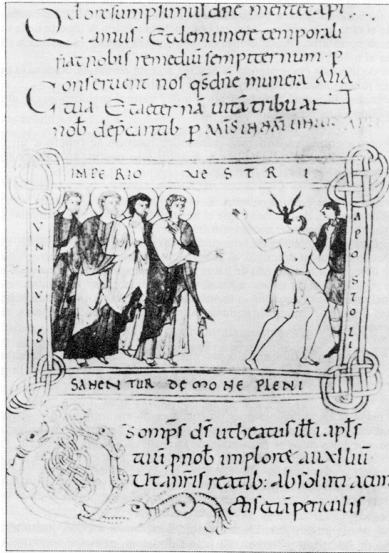 Qd ore sumpsimus dne mente capi
amus. Et de munere temporali
fiat nobis remediu sempiternum. p
Conservent nos qs dne munera
tua Et aeternā vitā tribuant
nob deprecantib p
IMPERIO VESTRI
VNIVS
APOSTOLI
SANENTUR DEMONE PLENI
s omps ds ut beatus illi apls
tuu p nob implore auxiliu
Ut a nris reatib: absoluti a cun
ctis etiā periculis